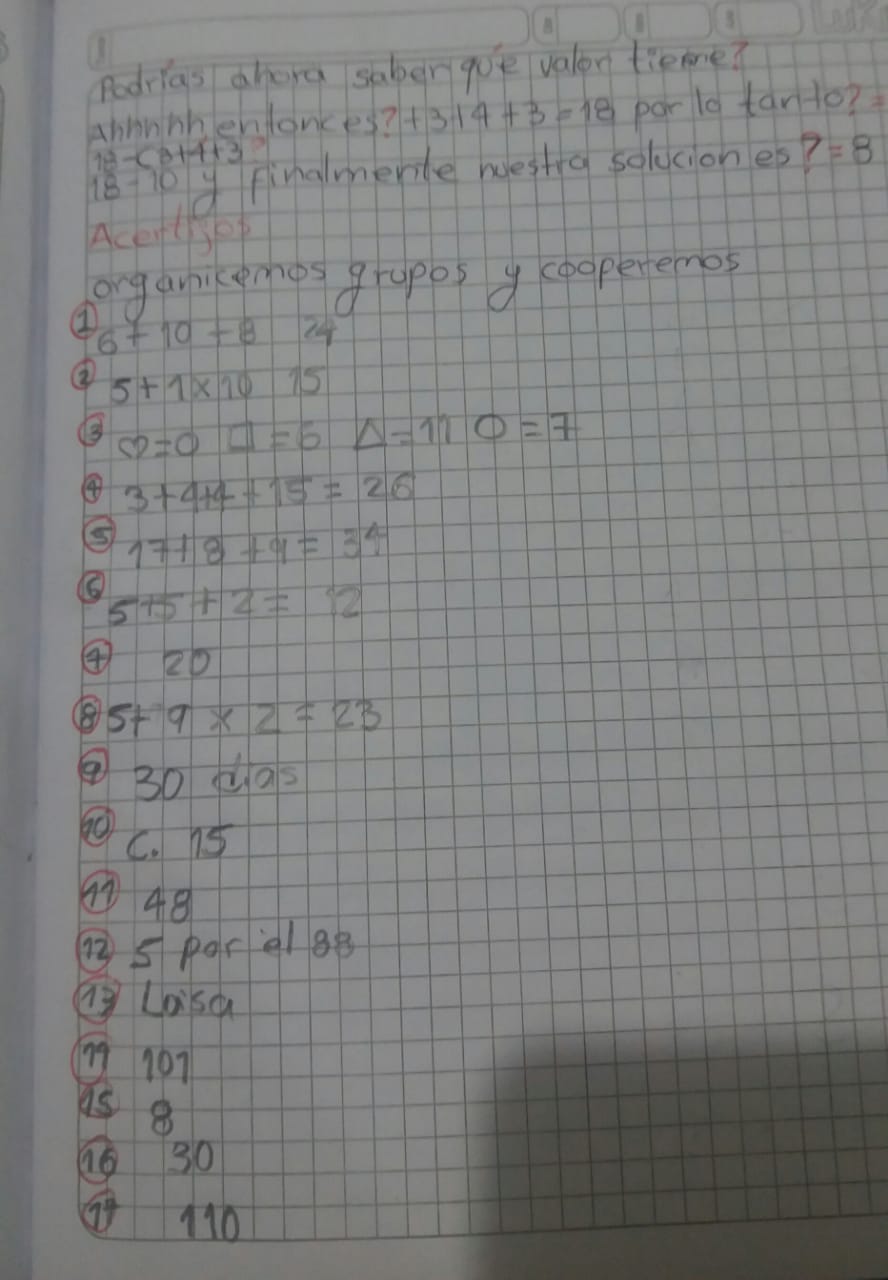 Podrías ahora saber qué valor tiene?
Ahhhhh entonces?+3+4+3=18 por lo tanto?=
18-(3+4+3
18-10 y finalmente nuestra solucion es?=8
Acertijos
organicemos grupos y cooperemos
1 6+10+8 24
2 5+1x10 15
3 ♡=0 □=6 △=11 O=7
4 3+4+4+15=26
5 17+8+9=34
6 5+5+2= 12
7 20
8 5+9x2=23
9 30 dias
10 C. 15
11 48
12 5 por el 88
13 Loisa
14 101
15 8
16 30
17 110